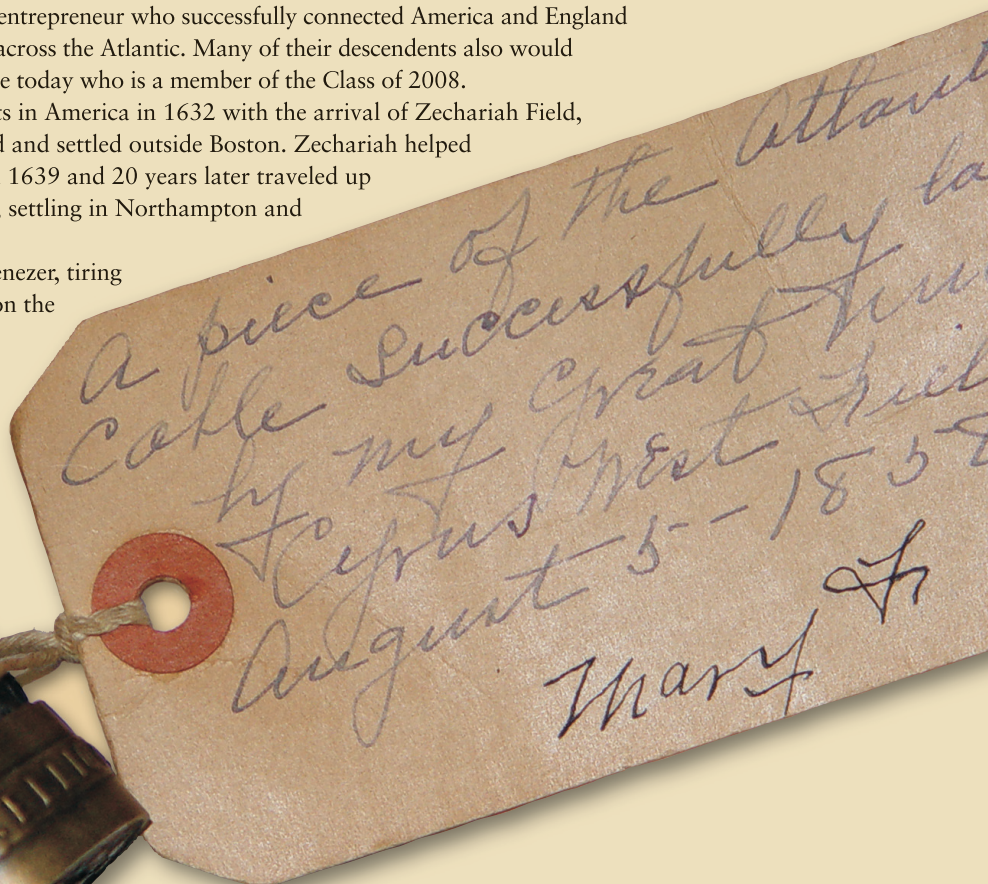 entrepreneur who successfully connected America and England
across the Atlantic. Many of their descendents also would
e today who is a member of the Class of 2008.
ts in America in 1632 with the arrival of Zechariah Field,
d and settled outside Boston. Zechariah helped
1639 and 20 years later traveled up
, settling in Northampton and
enezer, tiring
on the
A piece of the Atlant
Cable successfully la
by my Great
Cyrus West Fiel
August 5 - 1858
Mary